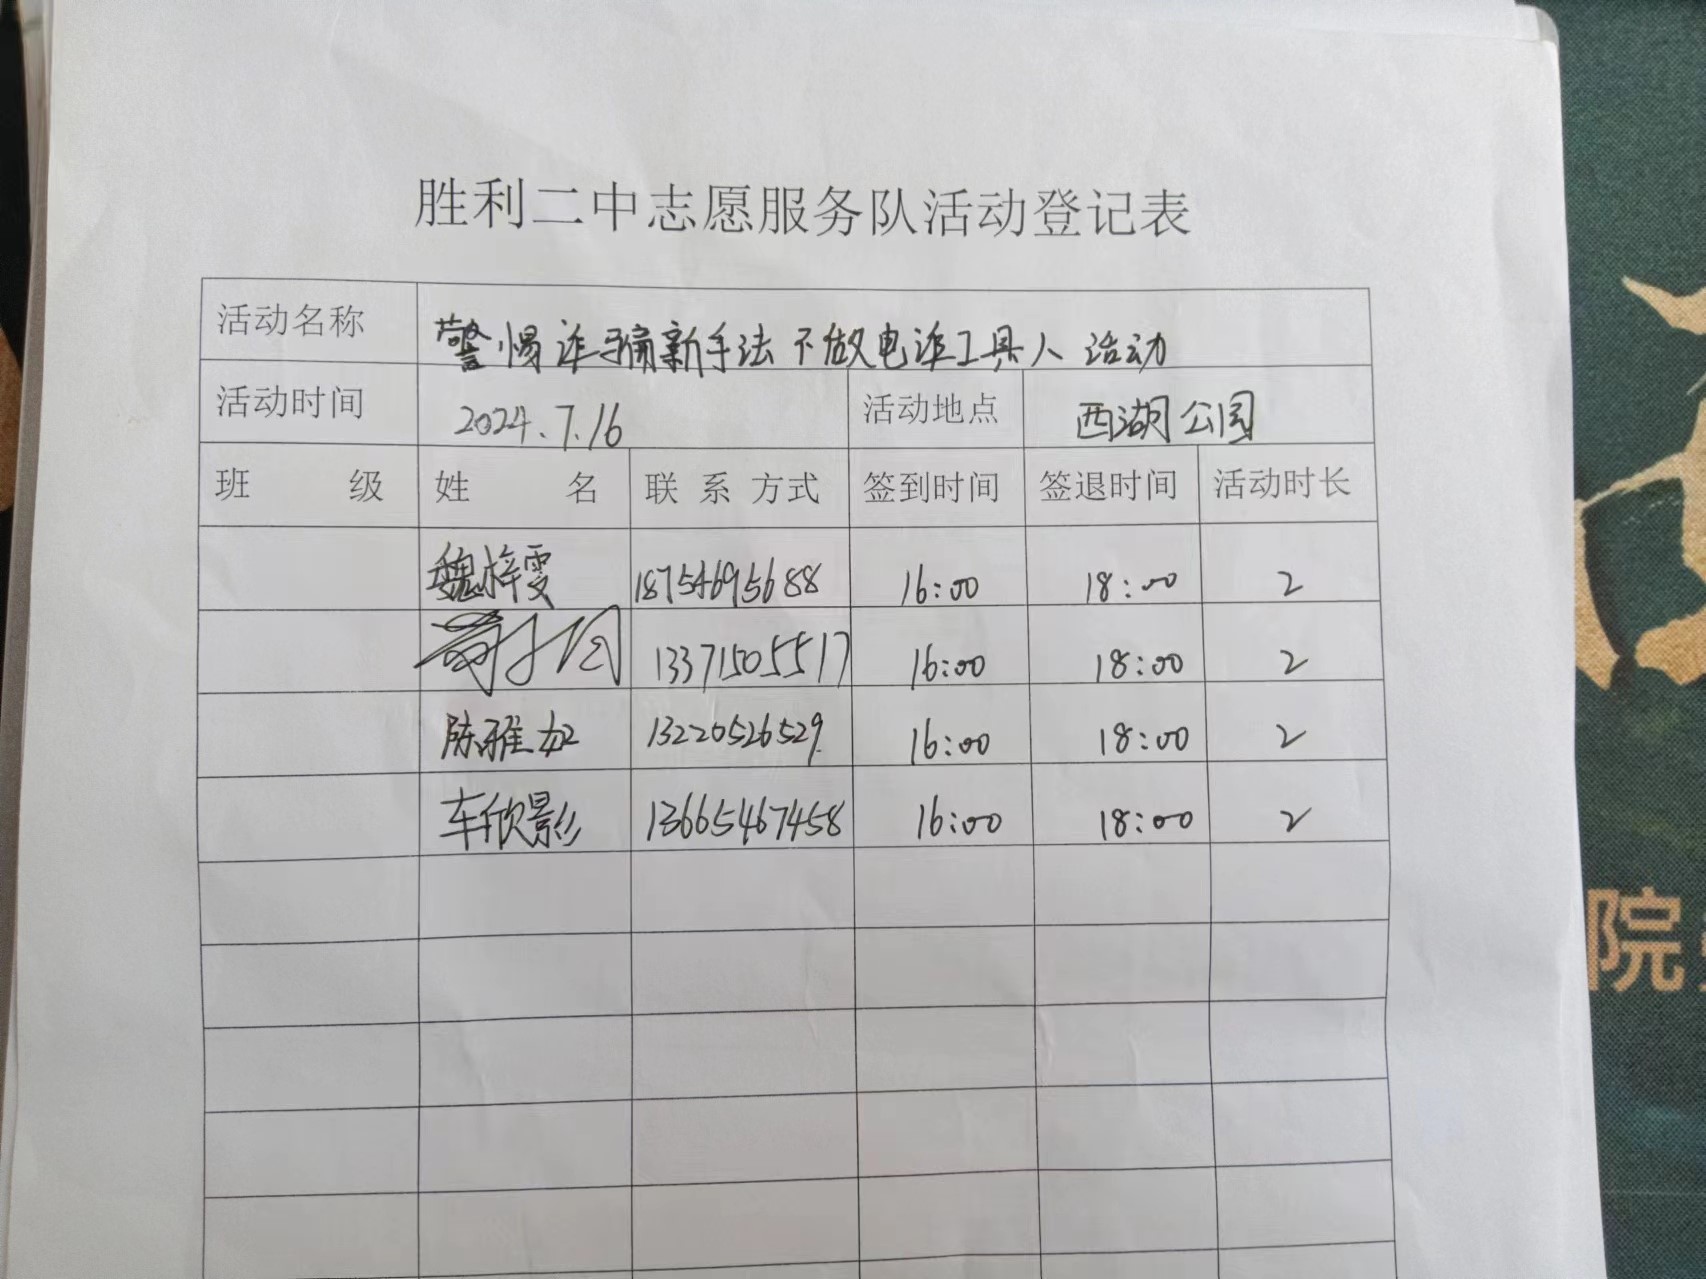 胜利二中志愿服务队活动登记表
活动名称 警惕诈骗新手法 不做电诈工具人 活动
活动时间 2024.7.16 活动地点 西湖公园
班 级 姓 名 联 系 方式 签到时间 签退时间 活动时长
魏梓雯 18754695688 16:00 18:00 2
13371505517 16:00 18:00 2
陈雅如 13220526529 16:00 18:00 2
车欣影 13665467458 16:00 18:00 2
院